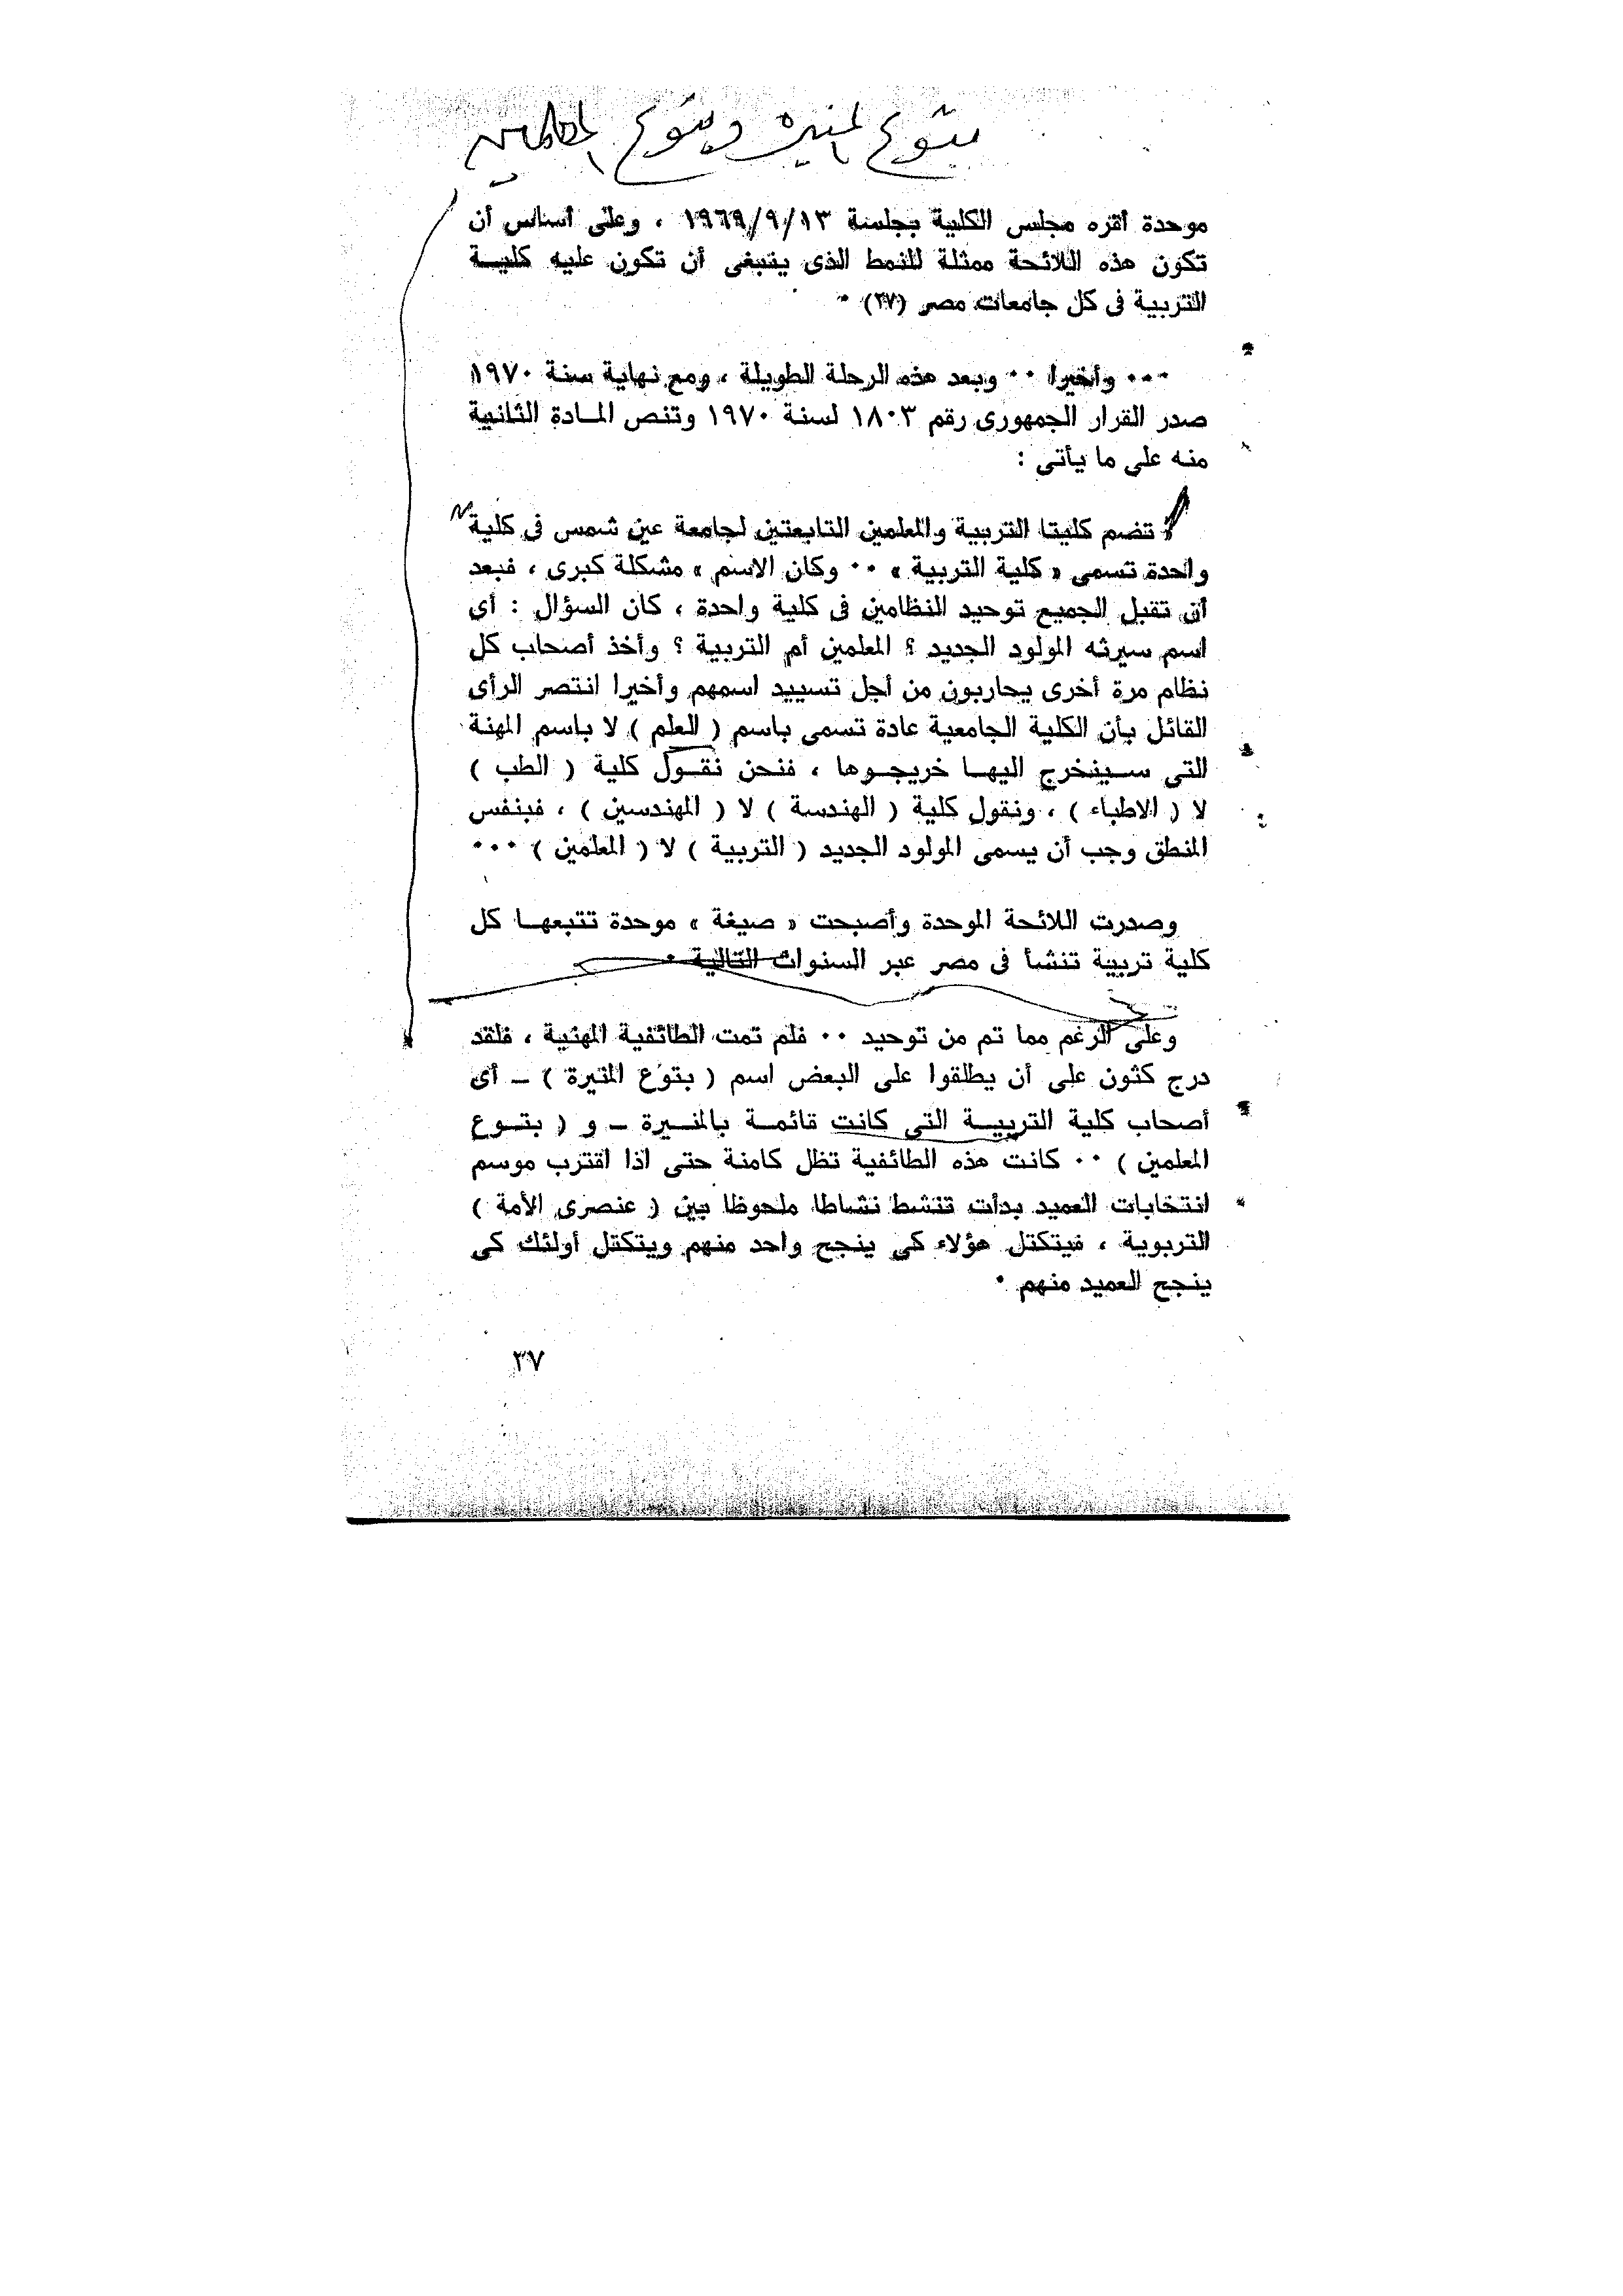 بتوع المنيره وبتوع المعلمين
موحدة أقره مجلس الكلية بجلسة ١٩٦٩/٩/١٣ ، وعلى أساس أن
تكون هذه اللائحة ممثلة للنمط الذى ينبغى أن تكون عليه كليــة
التربية فى كل جامعات مصر (٢٧) ٠
٠٠٠ وأخيرا ٠٠ وبعد هذه الرحلة الطويلة ، ومع نهاية سنة ١٩٧٠
صدر القرار الجمهورى رقم ١٨٠٣ لسنة ١٩٧٠ وتنص المـادة الثانية
منه على ما يأتى :
تضم كليتا التربية والمعلمين التابعتين لجامعة عين شمس فى كلية
واحدة تسمى « كلية التربية » ٠٠ وكان الاسم » مشكلة كبرى ، فبعد
أن تقبل الجميع توحيد النظامين فى كلية واحدة ، كان السؤال : أى
اسم سيرثه المولود الجديد ؟ المعلمين أم التربية ؟ وأخذ أصحاب كل
نظام مرة أخرى يحاربون من أجل تسييد اسمهم وأخيرا انتصر الرأى
القائل بأن الكلية الجامعية عادة تسمى باسم ( العلم ) لا باسم المهنة
التى سـينخرج اليهـا خريجـوها ، فنحن نقـول كلية ( الطب )
لا ( الاطباء ) ، ونقول كلية ( الهندسة ) لا ( المهندسين ) ، فبنفس
المنطق وجب أن يسمى المولود الجديد ( التربية ) لا ( المعلمين ) ٠٠٠
وصدرت اللائحة الموحدة وأصبحت « صيغة » موحدة تتبعهـا كل
كلية تربية تنشأ فى مصر عبر السنوات التالية ٠
وعلى الرغم مما تم من توحيد ٠٠ فلم تمت الطائفية المهنية ، فلقد
درج كثون على أن يطلقوا على البعض اسم ( بتوع المنيرة ) ــ أى
أصحاب كلية التربيـة التى كانت قائمـة بالمنـيرة ــ و ( بتـوع
المعلمين ) ٠٠ كانت هذه الطائفية تظل كامنة حتى اذا اقترب موسم
انتخابات العميد بدأت تنشط نشاطا ملحوظا بين ( عنصرى الأمة )
التربوية ، فيتكتل هؤلاء كى ينجح واحد منهم ويتكتل أولئك كى
ينجح العميد منهم ٠
٣٧